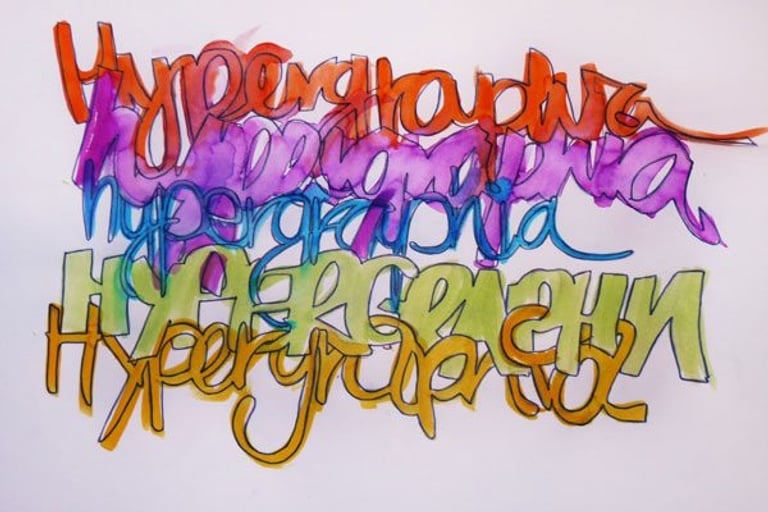 Hypergraphia
hypergraphia
hypergraphia
HYPERGRAPHIA
Hypergraphia